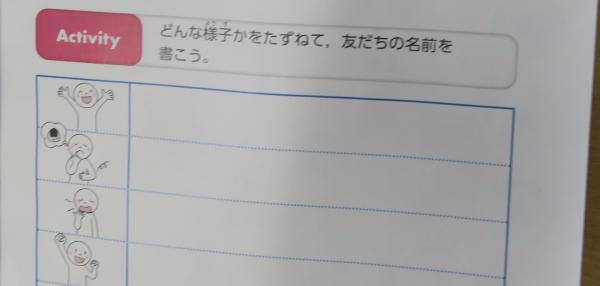 Activity
どんな様子かをたずねて，友だちの名前を
書こう。